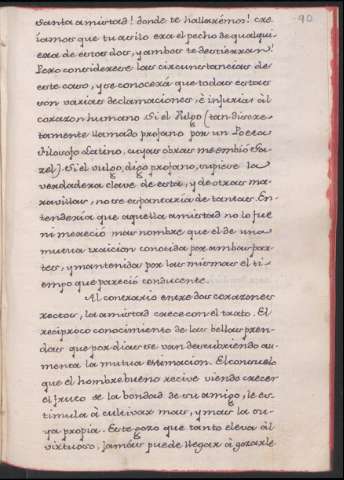 90
Santa amistad! donde te hallarémos! cre
íamos que tu asilo era el pecho de qualqui
era de estos dos, y ambos te destierran!
Pero considerese las circunstancias de
este caso, y se conocerá que todas estas
son varias declamaciones, è injurias àl
corazon humano. Si el Vulgo (tan discre
tamente llamado profano por un Poeta
Filosofo Latino, cuyas obras me embió Ga-
zel). Si el vulgo, digo profano, supiese la
verdadera clave de esta, y de otras ma-
ravillas, no se espantaria de tantas. En-
tendería que aquella amistad no lo fue
ni mereció mas nombre que el de una
mutua traicion conocida por ambas par-
tes, y mantenida por las mismas el ti-
empo que pareció conducente.
Al contrario entre dos corazones
rectos, la amistad crece con el trato. El
reciproco conocimiento de las bellas pren-
das que por dias se van descubriendo au-
menta la mutua estimacion. El consuelo
que el hombre bueno recive viendo crecer
el fruto de la bondad de su amigo, le es-
timula à cultivar mas, y mas la su-
ya propia. Este gozo que tanto eleva àl
virtuoso, jamás puede llegar à gozarle